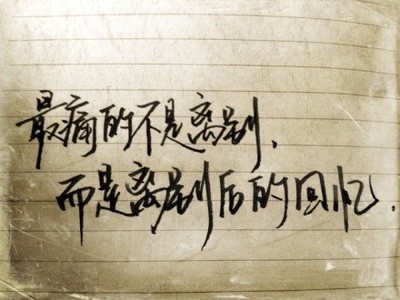 最痛的不是离别.
而是离别后的回忆.